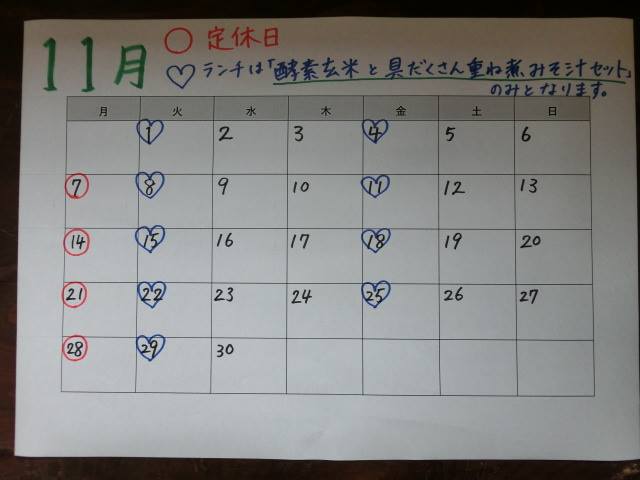 11月 ○ 定休日
♡ ランチは「酵素玄米と具だくさん重ね煮みそ汁セット」
のみとなります。
月 火 水 木 金 土 日
1 2 3 4 5 6
7 8 9 10 11 12 13
14 15 16 17 18 19 20
21 22 23 24 25 26 27
28 29 30